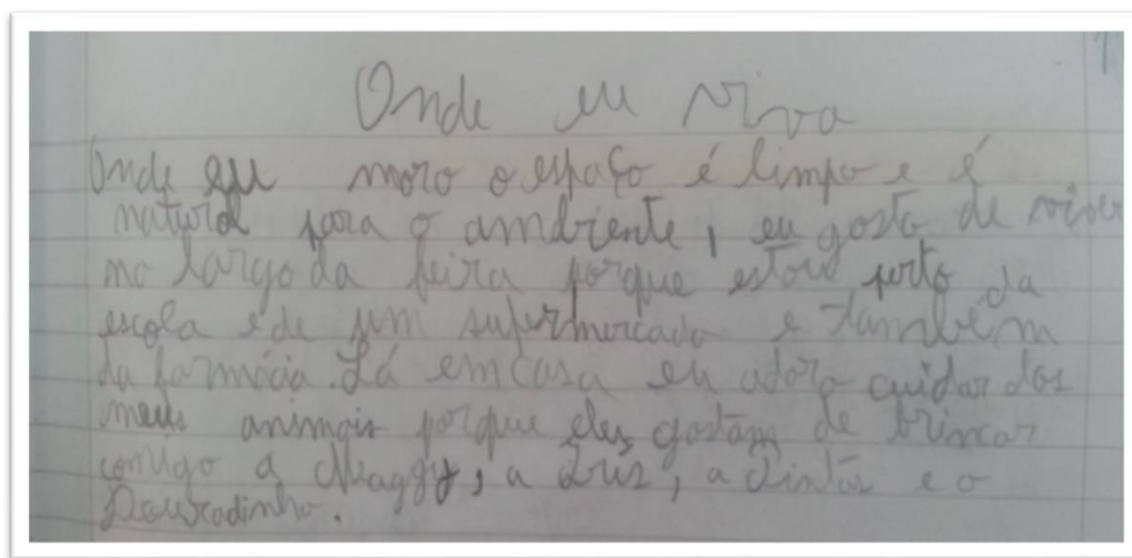 Onde eu viva
Onde eu moro o espaço é limpo e é
natural para o ambiente, eu gosto de viver
no largo da feira porque estou perto da
escola e de um supermercado e também
da farmácia. Lá em casa eu adoro cuidar dos
meus animais porque eles gostam de brincar
comigo a Maggy, a Luz, a e o
Douradinho.